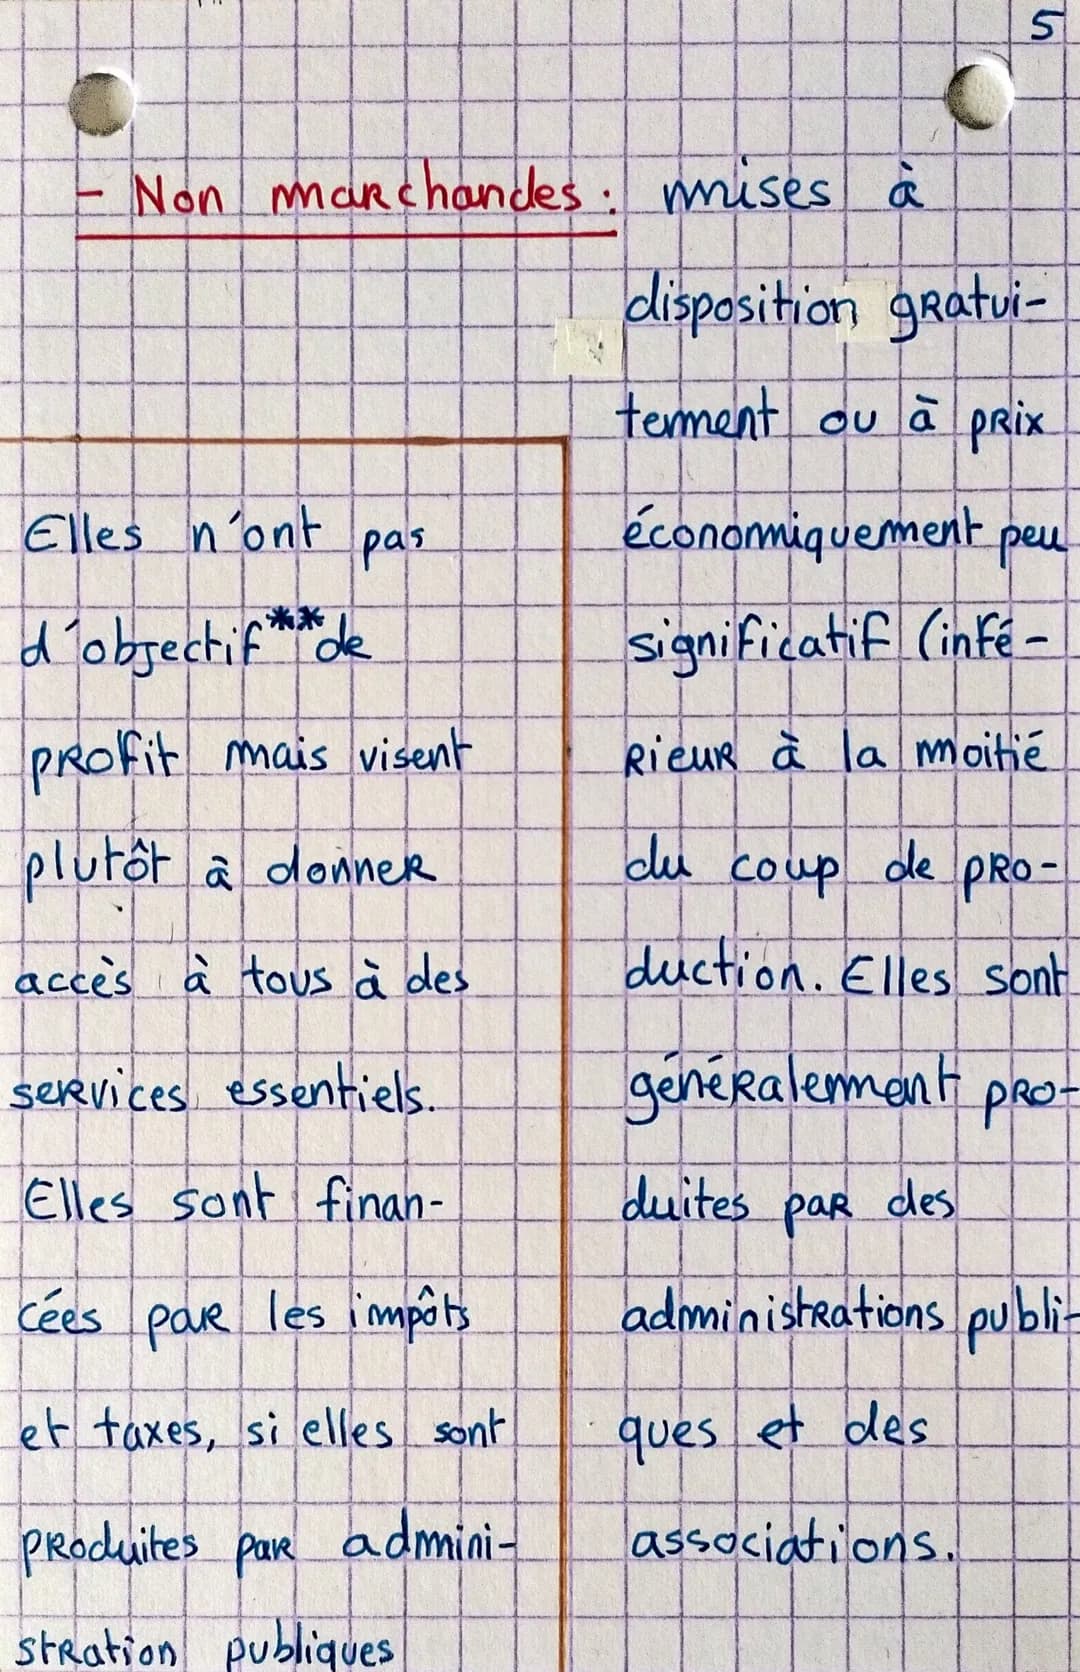 5
- Non marchandes : mises à
disposition gratui-
tement ou à prix
économiquement peu
significatif (infé-
rieur à la moitié
du coup de pro-
duction. Elles sont
généralement pro-
duites par des
administrations publi-
ques et des
associations.
Elles n'ont pas
d'objectif** de
profit mais visent
plutôt à donner
accès à tous à des
services essentiels.
Elles sont finan-
cées par les impôts
et taxes, si elles sont
produites par admini-
stration publiques